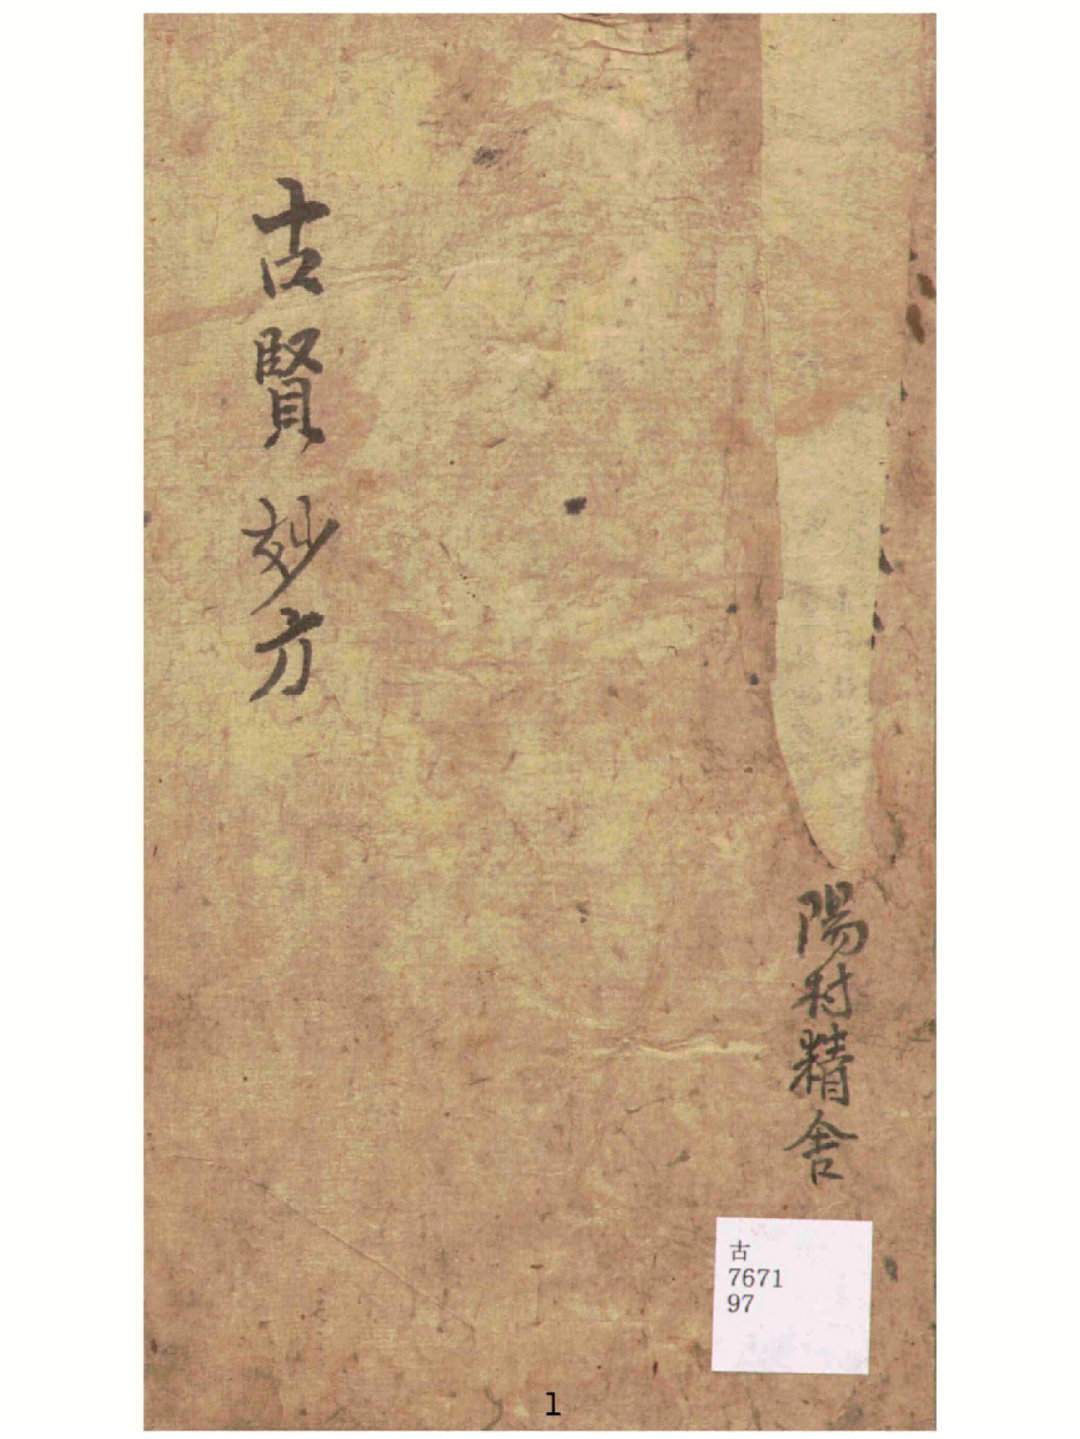 古賢妙方
陽村精舍
古
7671
97
1